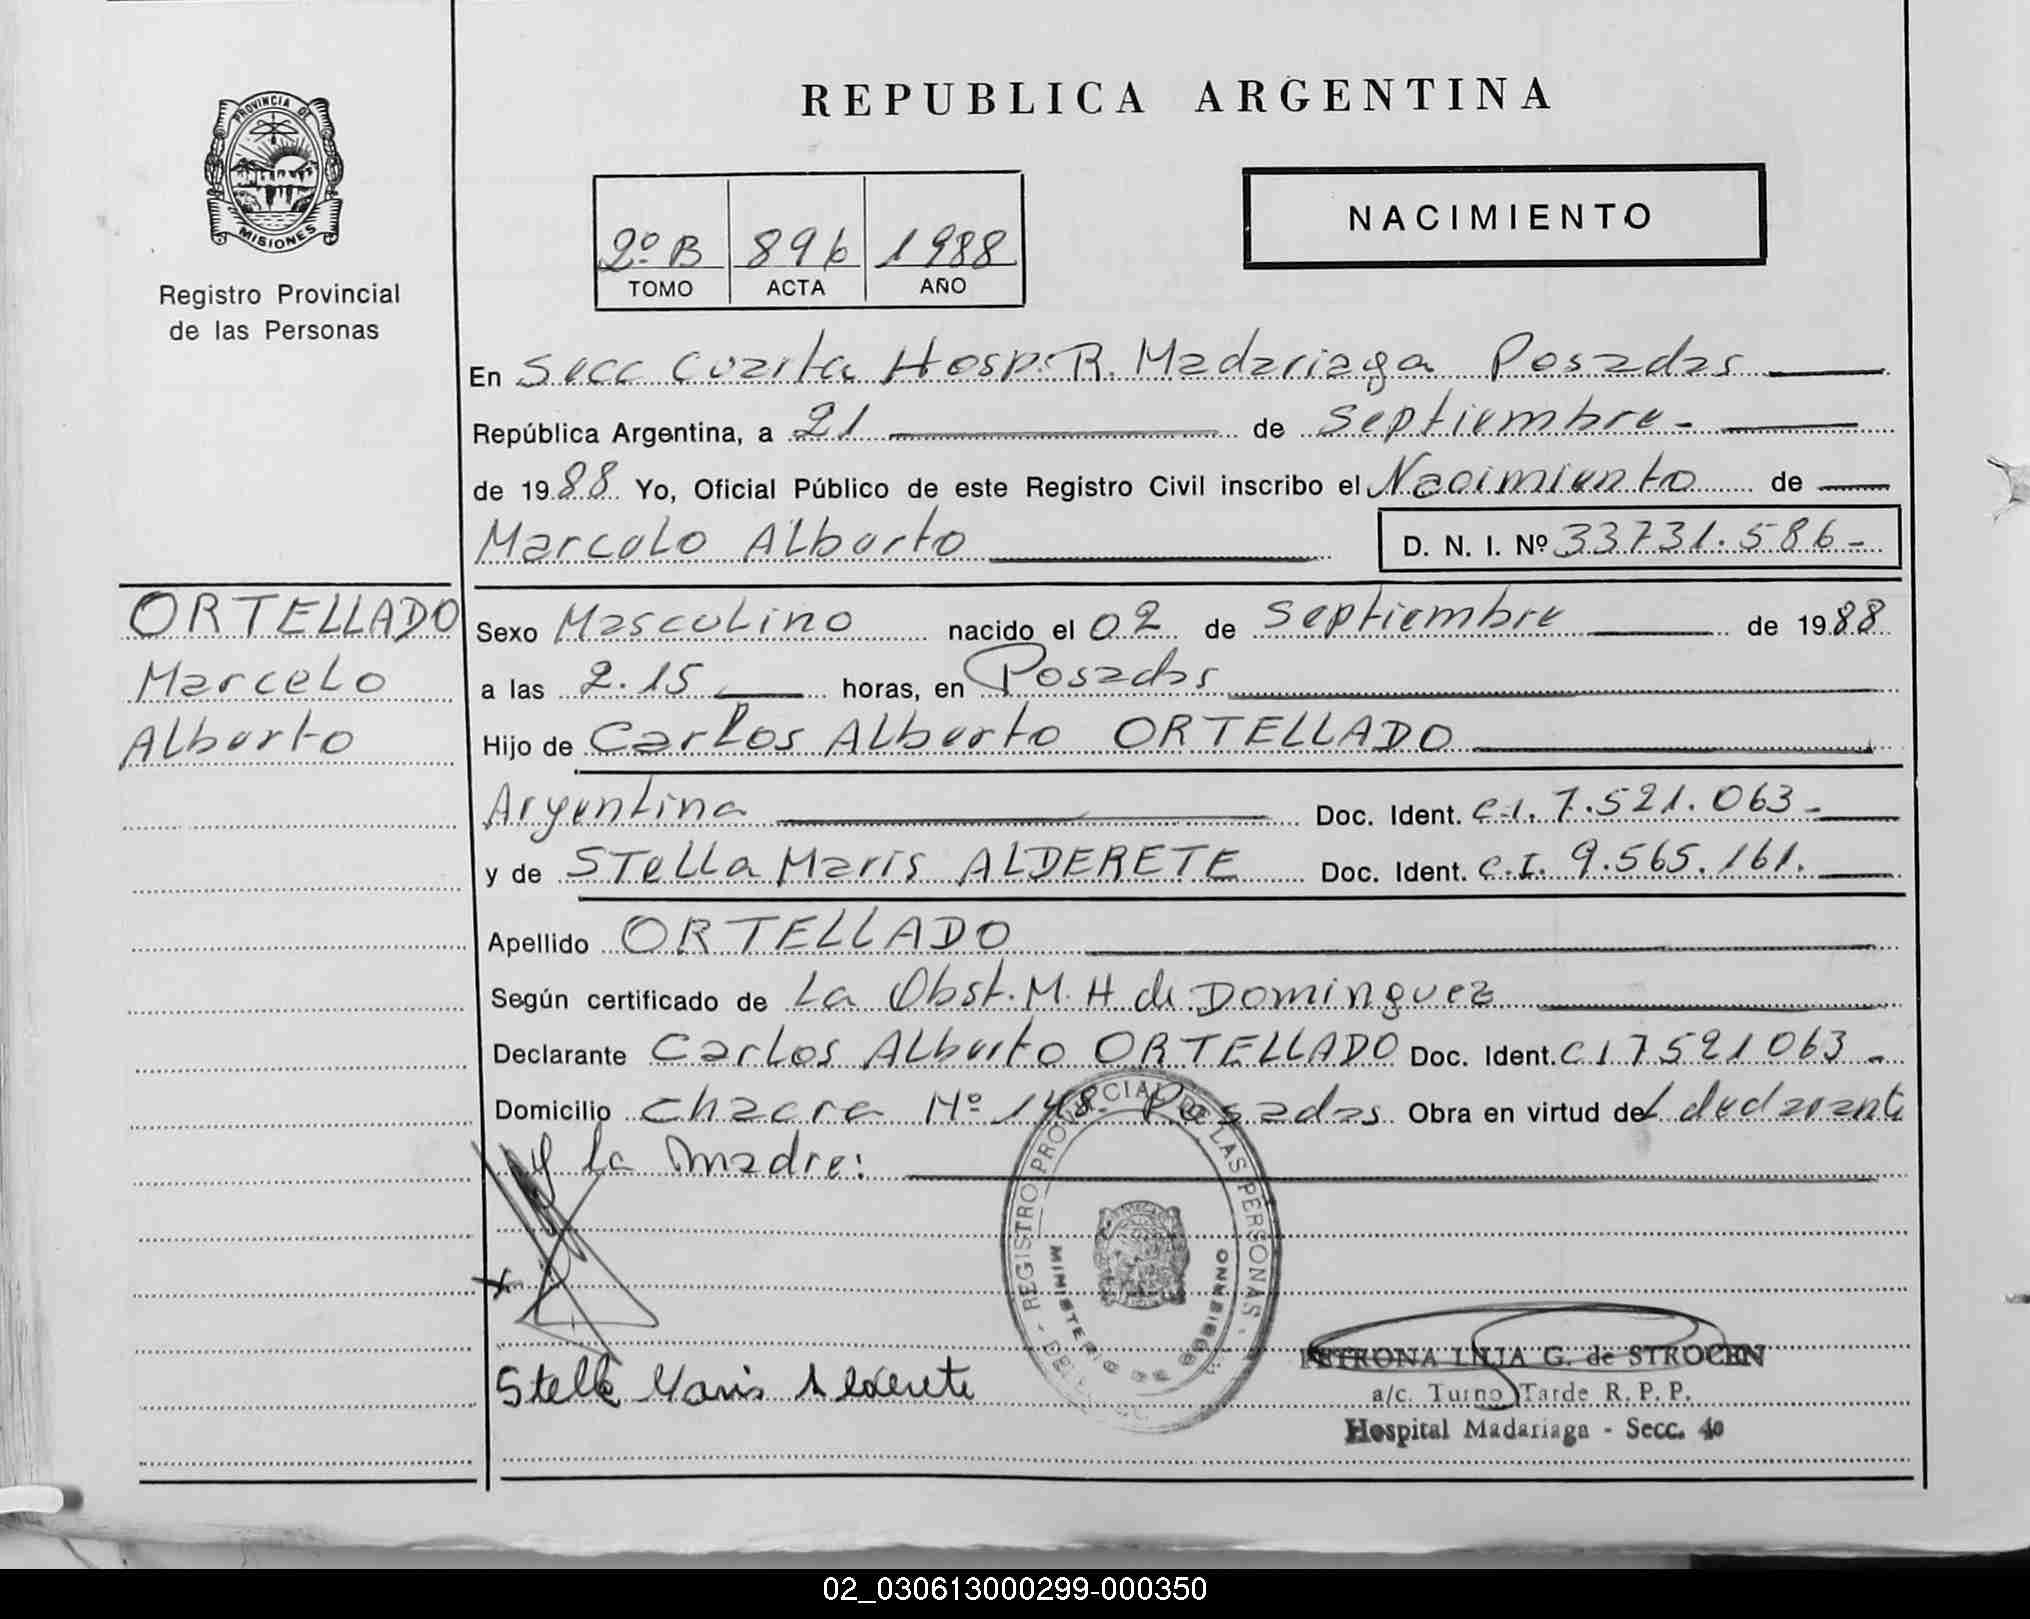 PROVINCIA DE
MISIONES
Registro Provincial
de las Personas
REPUBLICA ARGENTINA
2º B 896 1988
TOMO ACTA AÑO
NACIMIENTO
En Secc Cuarta Hosp. R. Madariaga Posadas
República Argentina, a 21 de Septiembre
de 1988 Yo, Oficial Público de este Registro Civil inscribo el Nacimiento de
Marcelo Alberto D. N. I. Nº 33731.586
ORTELLADO
Marcelo
Alberto
Sexo Masculino nacido el 02 de Septiembre de 1988
a las 2.15 horas, en Posadas
Hijo de Carlos Alberto ORTELLADO
Argentina Doc. Ident. C.I. 7.521.063
y de Stella Maris ALDERETE Doc. Ident. C.I. 9.565.161.
Apellido ORTELLADO
Según certificado de La Obst. M. H de Dominguez
Declarante Carlos Alberto ORTELLADO Doc. Ident. C I 7521063
Domicilio Chacra Nº 148. Posadas Obra en virtud del declarante
y la madre:
REGISTRO PROVINCIAL DE LAS PERSONAS
MINISTERIO DE GOBIERNO
Stella Maris Alderete
PETRONA LIJIA G. de STROCEN
a/c. Turno Tarde R. P. P.
Hospital Madariaga - Secc. 4a
02_030613000299-000350